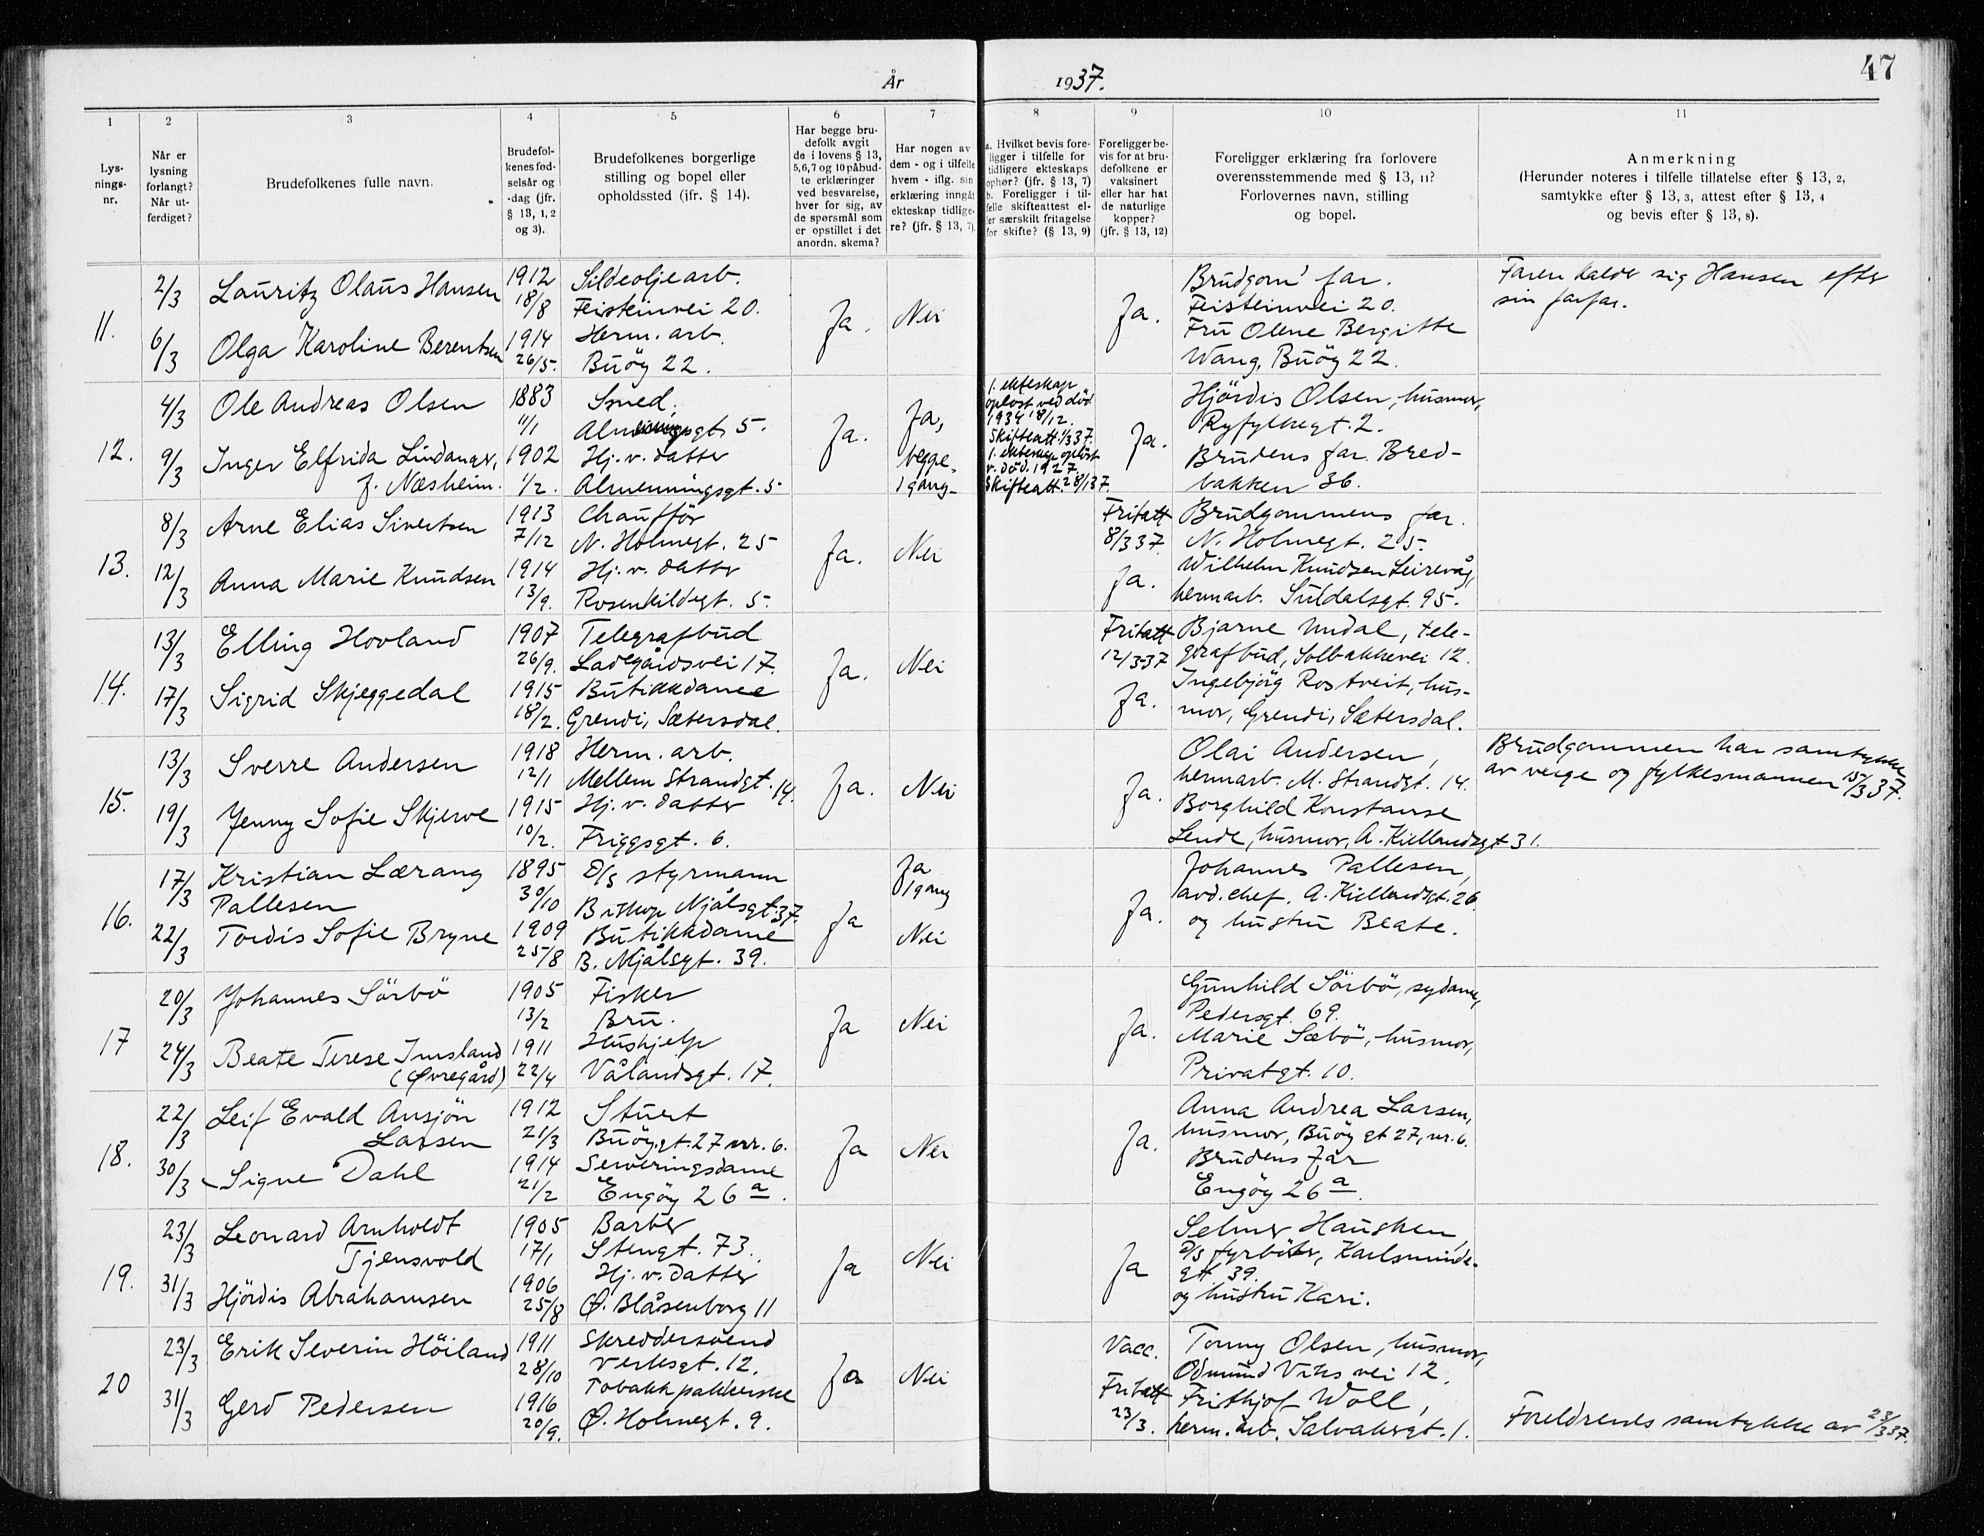 År 1937.
47
1 2 3 4 5 6 7 8 9 10 11
Lys-
nings-
nr.
Når er
lysning
forlangt?
Når ut-
ferdiget?
Brudefolkenes fulle navn.
Brudefol-
kenes fød-
selsår og
-dag (jfr.
§ 13, 1, 2
og 3).
Brudefolkenes borgerlige
stilling og bopel eller
opholdssted (jfr. § 14).
Har begge bru-
defolk avgit
de i lovens § 13,
5,6,7 og 10 påbud-
te erklæringer
ved besvarelse,
hver for sig, av
de spørsmål som
er opstillet i det
anordn. skema?
Har nogen av
dem - og i tilfelle
hvem - iflg. sin
erklæring inngåt
ekteskap tidlige-
re? (jfr. § 13, 7)
a. Hvilket bevis fore-
ligger i tilfelle for
tidligere ekteskaps
ophør? (jfr. § 13, 7)
b. Foreligger i til-
felle skifteattest el-
ler særskilt fritagelse
for skifte? (§ 13, 9)
Foreligger be-
vis for at bru-
defolkene er
vaksinert
eller har hat
de naturlige
kopper?
(jfr. § 13, 12)
Foreligger erklæring fra forlovere
overensstemmende med § 13, 11?
Forlovernes navn, stilling
og bopel.
Anmerkning
(Herunder noteres i tilfelle tillatelse efter § 13, 2,
samtykke efter § 13, 3, attest efter § 13, 4
og bevis efter § 13, 8).
11.
2/3
6/3
Lauritz Olaus Hansen
Olga Karoline Berentsen
1912
18/8
1914
26/5.
Sildeoljearb.
Feisteinvei 20.
Herm. arb.
Buöy 22.
Ja.
Nei
Ja.
Brudgom' far.
Feisteinvei 20.
Fru Olene Bergitte
Wang, Buöy 22.
Faren kalde sig Hansen efter
sin farfar.
12.
4/3
9/3
Ole Andreas Olsen
Inger Elfrida Lindanger,
f. Næsheim.
1883
11/1
1902
1/2.
Smed,
Almenningsgt. 5.
Hj. v. datter
Almenningsgt. 5
Ja.
Ja,
begge.
1 gang-
1. ekteskap
opløst ved död
1934 18/12.
Skifteatt. 1/3 37.
1. ekteskap opløst
v. död. 1927.
Skifteatt. 28/1 37.
Ja.
Hjördis Olsen, husmor,
Ryfylkegt. 2.
Brudens far. Bred-
bakken 36.
13.
8/3
12/3
Arne Elias Sivertsen
Anna Marie Knudsen
1913
7/12
1914
13/9.
Chaufför
N. Holmegt. 25
Hj. v. datter
Rosenkildegt. 5.
Ja.
Nei
Fritatt
8/3 37.
Ja.
Brudgommens far.
N. Holmegt. 25.
Wilhelm Knudsen Leirevåg,
hermarb. Suldalsgt. 95.
14.
13/3
17/3
Elling Hovland
Sigrid Skjeggedal
1907
26/9.
1915
18/2.
Telegrafbud
Ladegårdsvei 17.
Butikkdame
Grendi, Sætersdal.
Ja.
Nei
Fritatt
12/3-37
Ja.
Bjarne Undal, tele-
grafbud, Solbakkevei 12.
Ingebjörg Rostveit, hus-
mor, Grendi, Sætersdal.
15.
13/3
19/3
Sverre Andersen
Jenny Sofie Skjerve
1918
12/1
1915
10/2.
Herm. arb.
Mellem Strandgt. 14.
Hj. v. datter
Friggsgt. 6.
Ja.
Nei
Ja.
Olai Andersen,
hermarb. M. Strandgt. 14.
Borghild Konstanse
Lende, husmor, A. Kiellandsgt 31.
Brudgommen har samtykke
av verge og fylkesmannen 15/3 37.
16.
17/3
22/3
Kristian Lærang
Pallesen
Tordis Sofie Bryne
1895
30/10
1909
25/8
D/S styrmann
Biskop Njålsgt 37.
Butikkdame
B. Njålsgt. 39.
Ja
Ja
1 gang
Nei
Ja.
Johannes Pallesen,
avd. chef. A. Kiellandsgt. 26.
og hustru Beate.
17
20/3
24/3
Johannes Sörbö
Beate Terese Imsland
(Øvregård)
1905
13/2
1911
22/4
Fisker
Bru.
Hushjelp
Vålandsgt. 17.
Ja
Nei
Ja.
Gunhild Sörbö, sydame,
Pedersgt. 69.
Marie Sæbö, husmor,
Privatgt. 10.
18.
22/3
30/3
Leif Evald Ansjön
Larsen
Signe Dahl
1912
21/3
1914
21/2
Stuert
Buöygt. 27 nr. 6.
Serveringsdame
Engöy 26 a.
Ja
Nei
Ja.
Anna Andrea Larsen,
husmor, Buöy gt 27, nr. 6.
Brudens far
Engöy 26 a.
19.
23/3
31/3
Leonard Arnholdt
Tjensvold
Hjördis Abrahamsen
1905
17/1
1906
25/8
Barber
Stengt. 73.
Hj. v. datter
Ø. Blåsenborg 11
Ja
Nei
Ja
Selmer Hausken,
D/S fyrböter, Karlsminde-
gt. 39.
og hustru Kari.
20
23/3
31/3
Erik Severin Höiland
Gerd Pedersen
1911
28/10
1916
20/9.
Skreddersvend
Verksgt. 12.
Tobakkpakkerske
Ø. Holmegt. 9.
Ja
Nei
Vacc.
Fritatt
23/3.
Tonny Olsen, husmor,
Odmund Viks vei 12.
Frithjof Woll,
herm. arb. Salvakergt. 1.
Foreldrenes samtykke av 23/3 37.